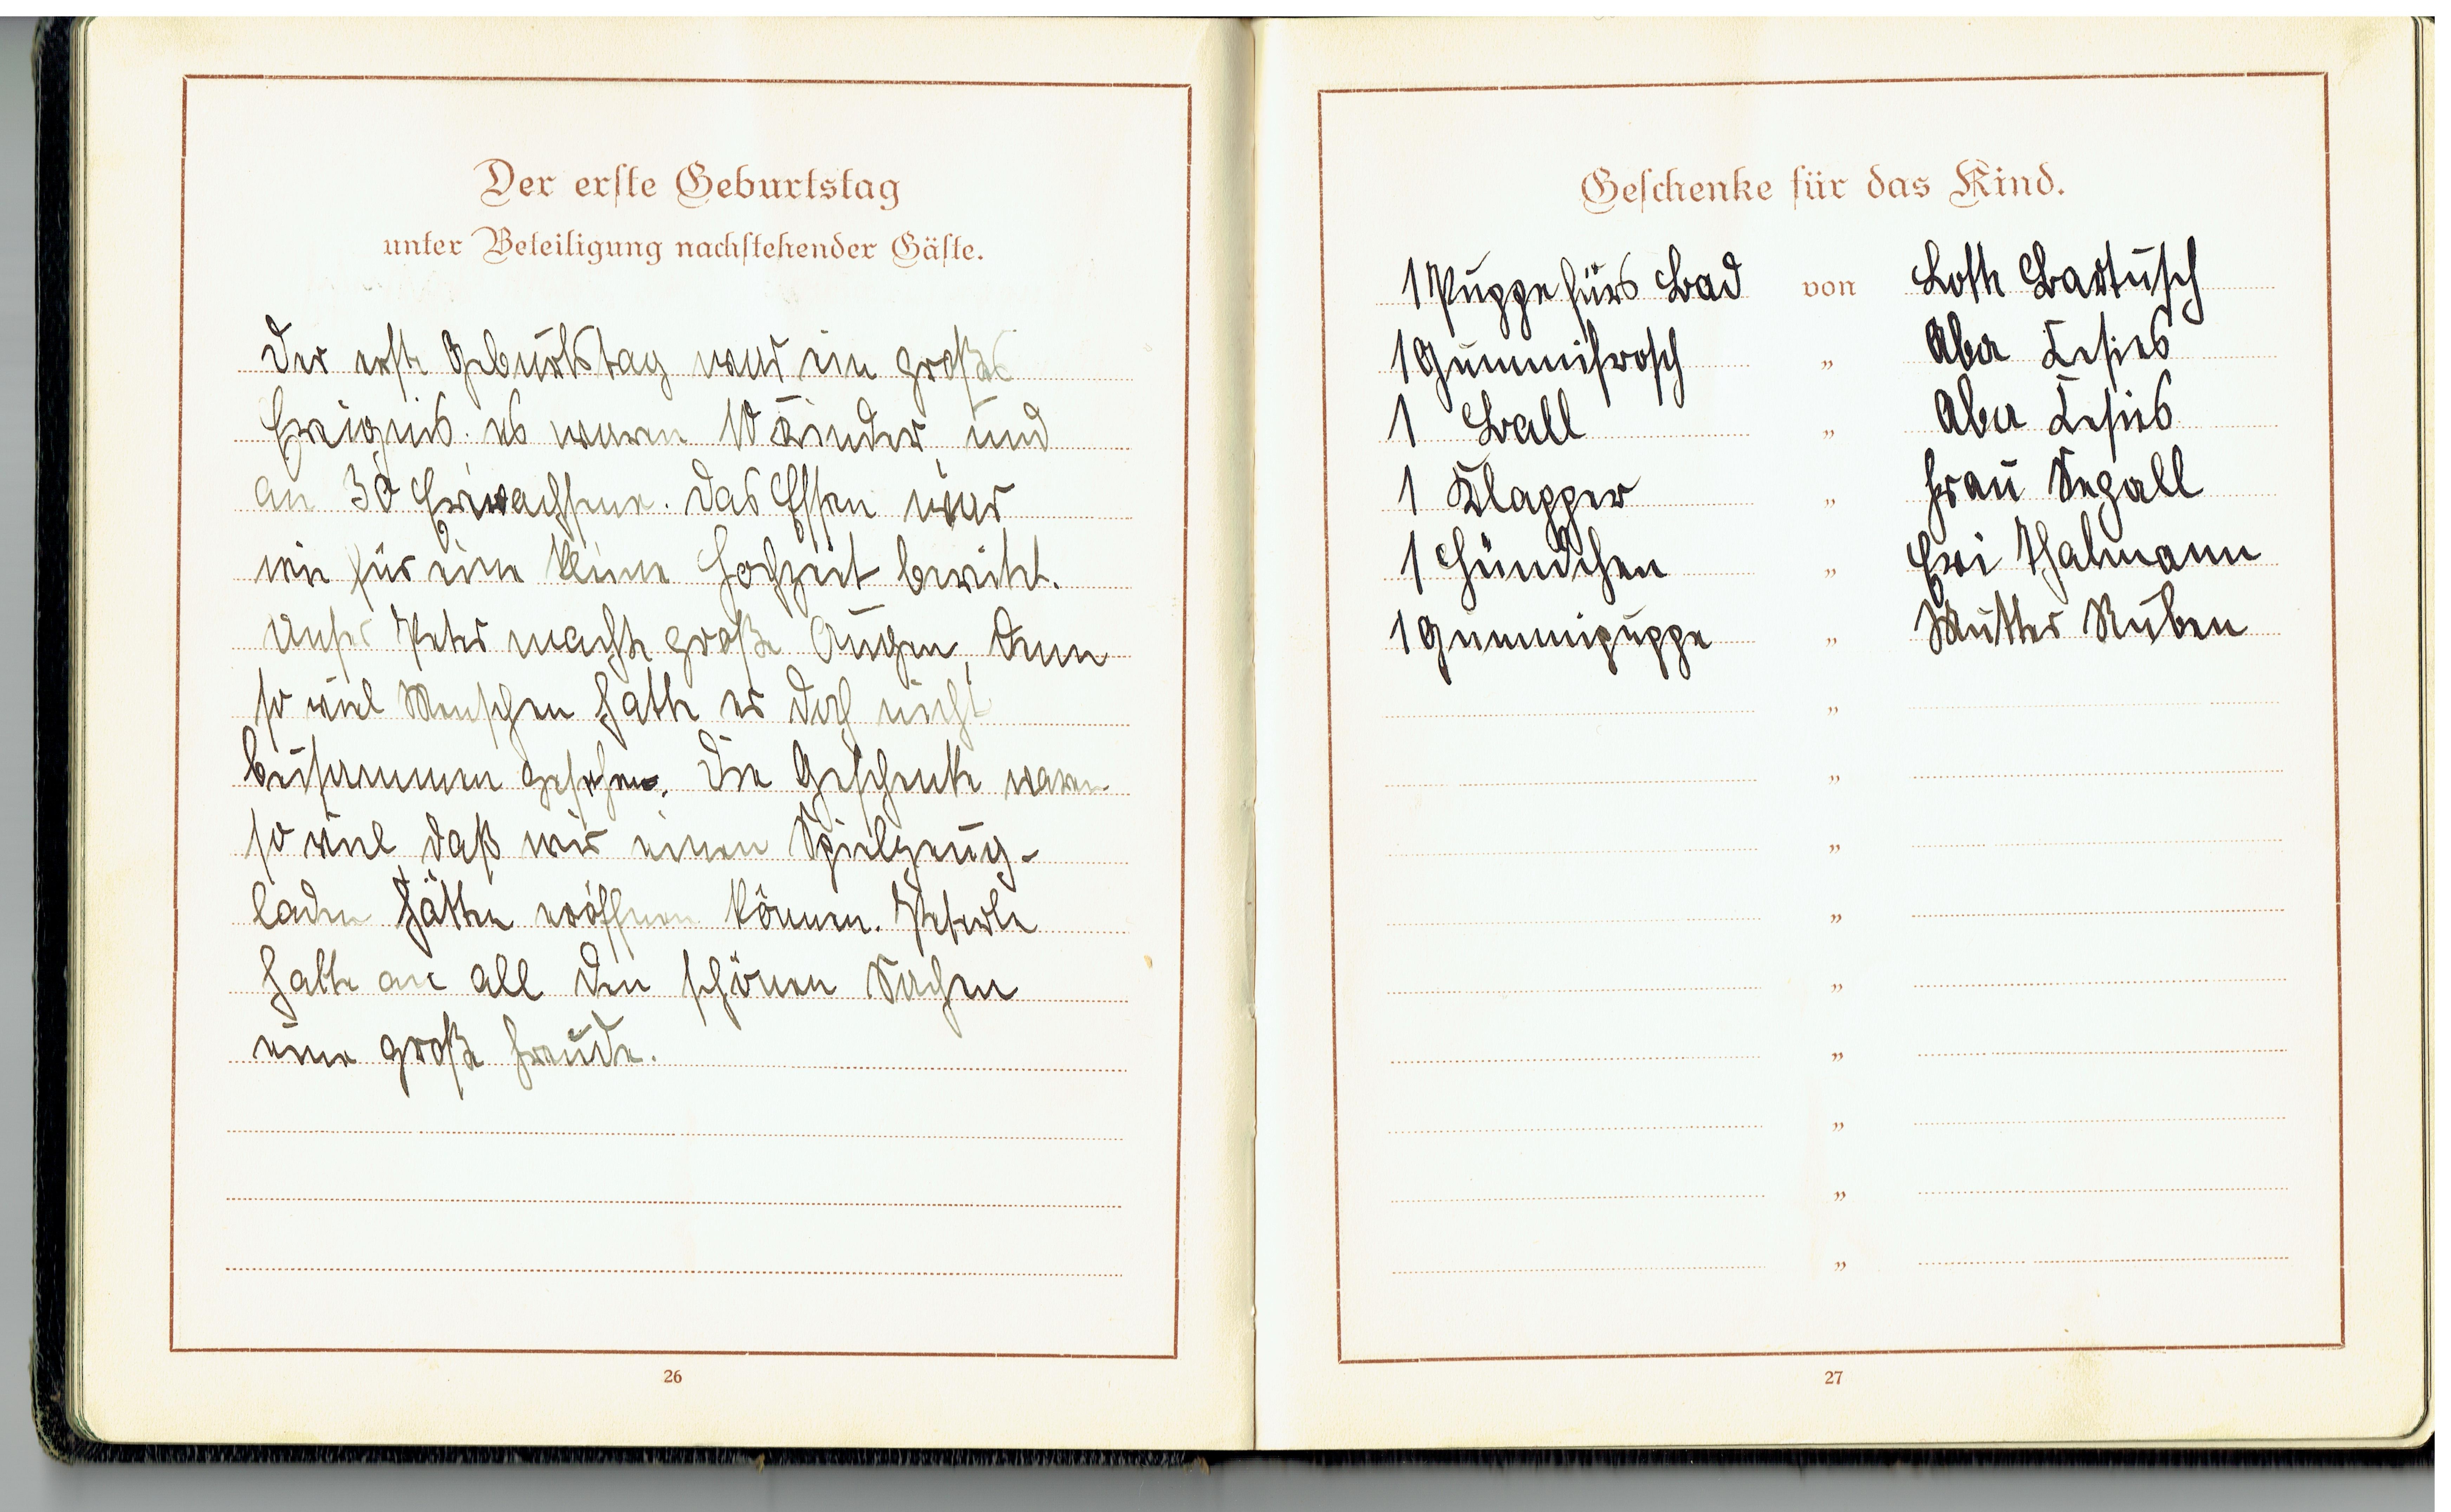 Der erste Geburtstag
unter Beteiligung nachstehender Gäste.
Der erste Geburtstag war ein großes
Ereignis. es waren 10 Kinder und
an 30 Erwachsene. Das Essen war
wie für eine kleine Hochzeit bereitet.
Unser Peter machte große Augen, denn
so viel Menschen hatte er doch nicht
beisammen gesehen. Die Geschenke waren
so viel, daß wir einen Spielzeug-
laden hätten eröffnen können. Peterle
hatte an all den schönen Sachen
eine große Freude.
26
Geschenke für das Kind.
1 Puppe fürs Bad von Lotte Bartusch
1 Gummifrosch „ Aba
1 Ball „ Aba
1 Klapper „ Frau Segall
1 Hündchen „ Eri Thalmann
1 Gummipuppe „ Mutter Ruben
„
„
„
„
„
„
„
„
„
27